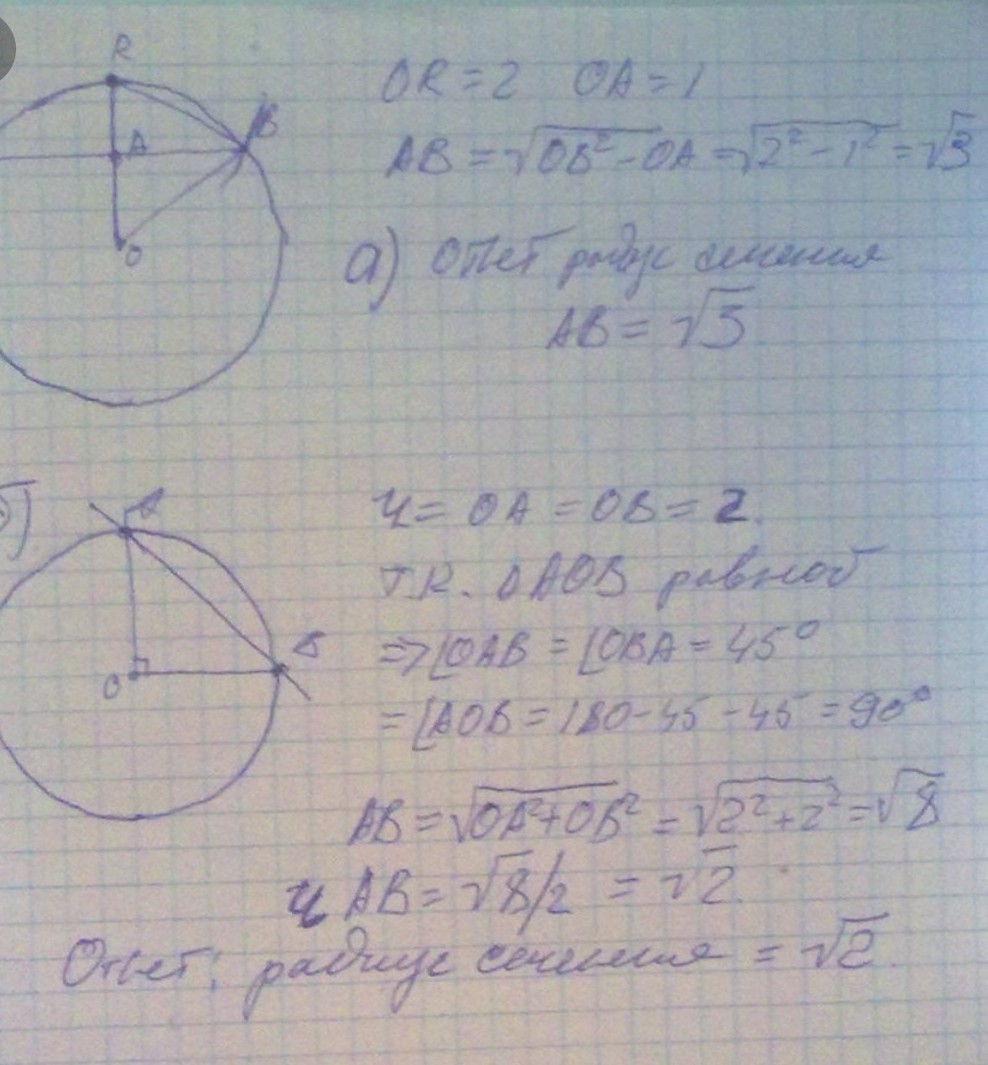 R
A
B
O
OR = 2 OA = 1
AB = √OB² - OA = √2² - 1² = √3
а) Ответ радиус сечения
AB = √3
O
B
r = OA = OB = 2.
т.к. ΔAOB равноб
=> ∠OAB = ∠OBA = 45°
= ∠AOB = 180 - 45 - 45 = 90°
AB = √OA² + OB² = √2² + 2² = √8
r AB = √8/2 = √2.
Ответ: радиус сечения = √2.